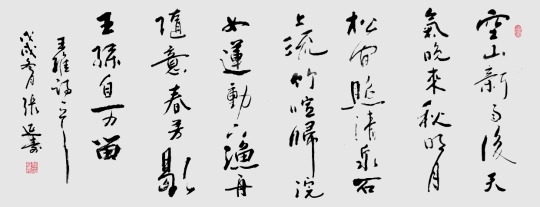 空山新雨後天
氣晚來秋明月
松间照清泉石
上流竹喧歸浣
女蓮動下漁舟
隨意春芳歇
王孫自可留
王維詩
戊戌 月張 壽